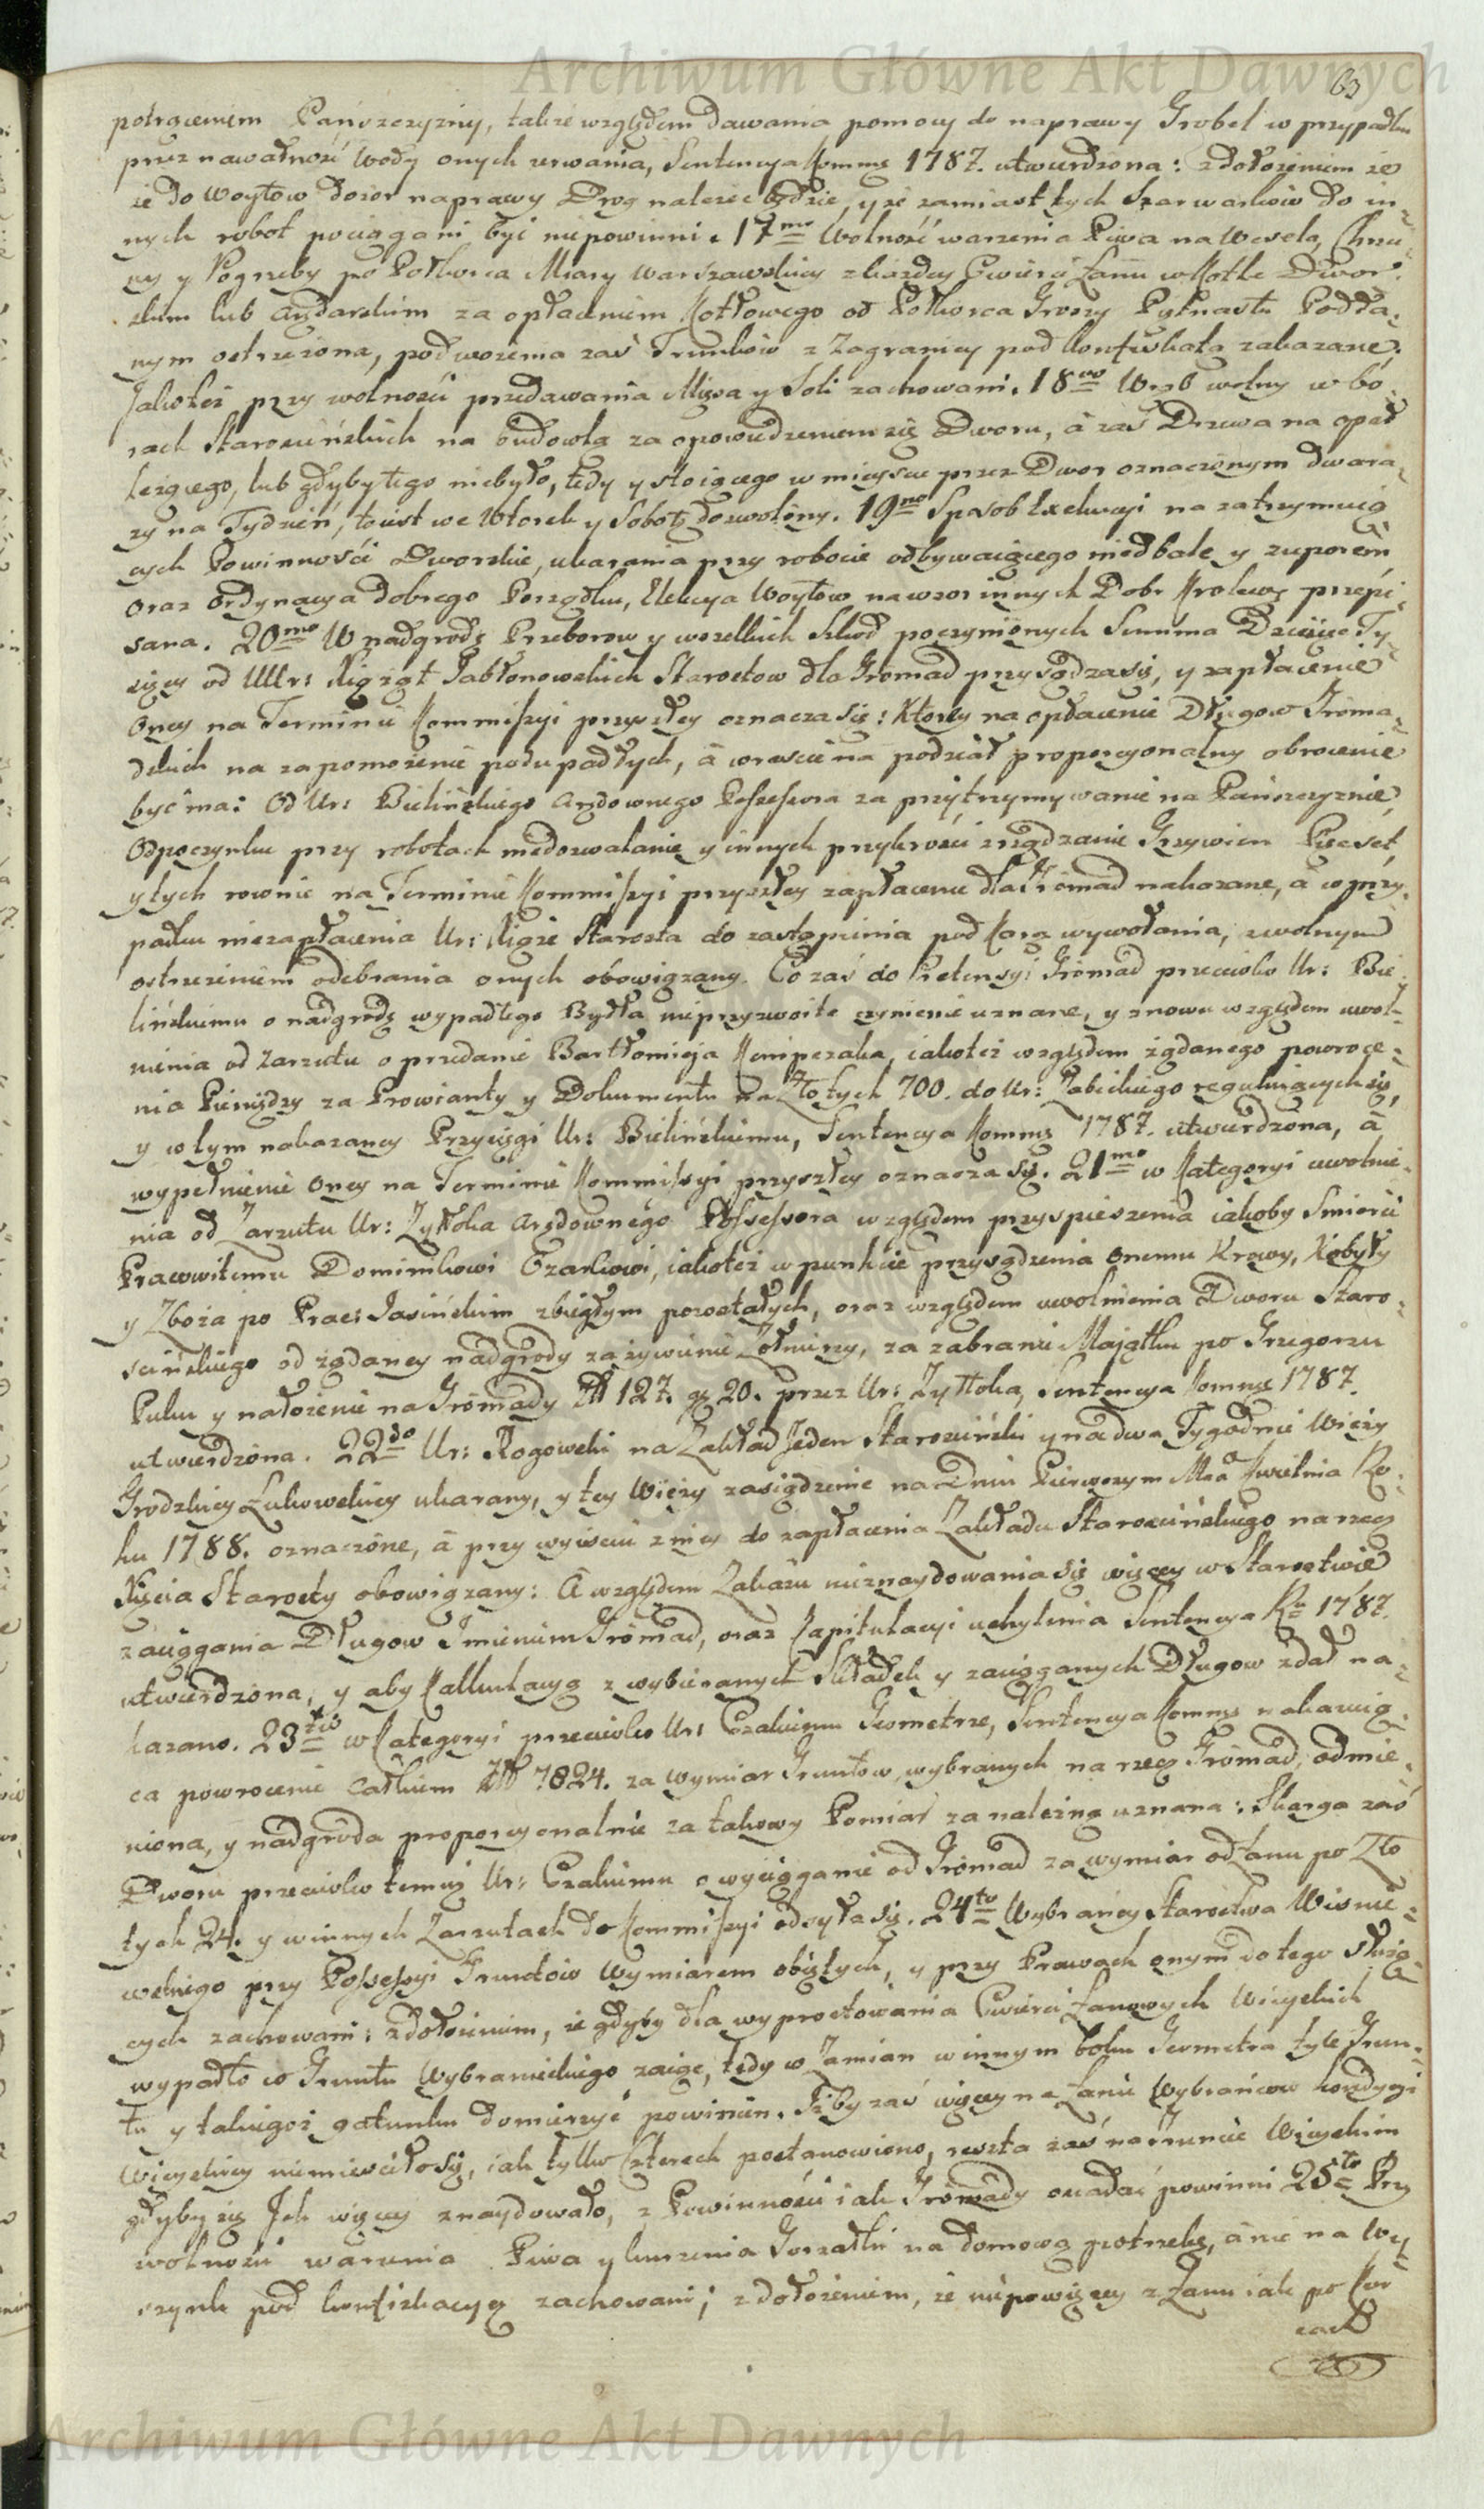 Archiwum Główne Akt Dawnych
63
potrąceniem Pańszczyzny, także względem dawania pomocy do naprawy Grobel w przypadku
przez nawałność Wody onych zerwania, Sentencya Kommis 1787. utwierdzona: z dołożeniem że
że do Woytow dozor naprawy Drog należeć będzie, y że zamiast tych Szarwarkow do in-
nych robot pociągani być niepowinni. 17mo Wolność warzenia Piwa na Wesela, Chrzci-
ny y Pogrzeby po Połkorca Miary Warszawskiey z każdey Cwierci Łanu w Kotle Dwor-
skim lub Arędarskim za opłaceniem Kotłowego od Połkorca Groszy Pytnastu Podda-
nym ostrzeżona, podwożenia zaś Trunków z Zagranicy pod konfiskatą zakazane.
Jakoteż przy wolności przedawania Mięsa y Soli zachowani. 18vo Wrąb wolny w bo-
rach Starościńskich na budowlą za opowiedzeniem się Dworu, à zaś Drzewa na opał
leżącego, lub gdyby tego niebyło, tedy y stoiącego w mieyscu przez Dwor oznaczonym dwa ra-
zy na Tydzień, to iest we Wtorek y Sobotę dozwolony. 19no Sposob Exekucyi na zatrzymuią-
cych Powinności Dworskie, ukarania przy robocie odbywaiącego niedbale y z uporem
oraz Ordynacya dobrego Porządku, Elekcya Woytow na wzor innych Dobr Krolews: przepi-
sana. 20mo W nadgrodę Przeborow y wszelkich Szkod poczynionych Summa Dziesięć Ty-
sięcy od UUr: Xiążąt Jabłonowskich Starostow dla Gromad przysądza się, y zapłacenie
oney na Terminie Kommissyi przyszłey oznacza się: Ktorey na opłacenie Długow Groma-
dzkich na zapomożenie podupadłych, à wreszcie na podział proporcyonalny obrocenie
być ma: Od Ur: Bielińskiego Arędownego Possessora za przytrzymywanie na Pańszczyznie,
Odpoczynku przy robotach niedozwalanie y innych przykrości zrządzanie Grzywien Pięćset,
y tych rownie na Terminie Kommissyi przyszłey zapłacenie dla Gromad nakazane, à w przy-
padku niezapłacenia Ur: Xiąże Starosta do zastąpienia pod Karą wywołania, z wolnym
ostrzeżeniem odebrania onych obowiązany. Co zaś do Pretensyi Gromad przeciwko Ur: Bie-
lińskiemu o nadgrodę wypadłego Bydła nieprzyzwoite czynienie uznane, y znowu względem uwol-
nienia od zarzutu o przedanie Bartłomieja Kempczaka, iakoteż względem żądanego powroce-
nia Pieniędzy za Prowianty y Dokumentu na Złotych 700. do Ur: Zabickiego reguluiących się,
y w tym nakazaney Przysięgi Ur: Bielińskiemu, Sentencya Kommis 1787. utwierdzona, à
wypełnienie oney na Terminie Kommissyi przyszłey oznacza się. 21mo w Kategoryi uwolnie-
nia od Zarzutu Ur: Zyttoka Arędownego Possessora względem przyspieszenia iakoby Smierci
Pracowitemu Dominikowi Czarkowi, iakoteż w punkcie przysądzenia onemu Krowy, Kobyły
y Zboża po Prac: Jasińskim zbiegłym pozostałych, oraz względem uwolnienia Dworu Staro-
scińskiego od żądaney nadgrody za żywienie Żołnierzy, za zabranie Majątku po Grzegorzu
Puku y nałożenie na Gromady Zł 127. gr 20. przez Ur: Zyttoka, Sentencya Kommis 1787.
utwierdzona. 22do Ur: Rogowski na Zakład Jeden Starościński y na dwa Tygodnie Wieży
Grodzkiey Łukowskiey ukarany, y tey Wieży zasiądzenie na Dniu Pierwszym Mca Kwietnia Ro-
ku 1788. oznaczone, à przy wyiściu z niey do zapłacenia Zakładu Starościńskiego na rzecz
Xięcia Starosty obowiązany: A względem Zakazu nieznaydowania się więcey w Starostwie
zaciągania Długow Imieniem Gromad, oraz Kapitulacyi uchylenia Sentencya Ru 1787.
utwierdzona, y aby Kalkulacyą z wybieranych Składek y zaciąganych Długow zdał na-
kazano. 23tio w Kategoryi przeciwko Ur: Czakiemu Geometrze, Sentencya Kommis nakazuią-
ca powrocenie całkiem Zł 7824. za wymiar Gruntow, wybranych na rzecz Gromad, odmie-
niona, y nadgroda proporcyonalnie za takowy Pomiar za należną uznana: Skarga zaś
Dworu przeciwko temuż Ur: Czakiemu o wyciąganie od Gromad za wymiar od Łanu po Zło-
tych 24. y w innych Zarzutach do Kommissyi odsyła się. 24to Wybrańcy Starostwa Wisnie-
wskiego przy Possessyi Gruntow Wymiarem obiętych, y przy Prawach onym do tego służą-
cych zachowani: z dołożeniem, że gdyby dla wyprostowania Cwierci Łanowych Wieyskich
wypadło co Gruntu Wybranieckiego zaiąć, tedy w Zamian w innym boku Geometra tyle Grun-
tu y takiegoż gatunku domierzyć powinien. Iżby zaś więcey na Łanie Wybrańcow kondycyi
Wieyskiey niemieściło się, iak tylko Czterech postanowiono, reszta zaś na Gruncie Wieyskim
gdyby się Ich więcey znaydowało, z Powinności iak Gromady osiadać powinni 25to Przy
wolności warzenia Piwa y kurzenia Gorzałki na domową potrzebę, à nie na Wy-
szynk pod konfiskacyą zachowani; z dołożeniem, że niepowięcey z Łanu iak po Kor
cach
Archiwum Główne Akt Dawnych